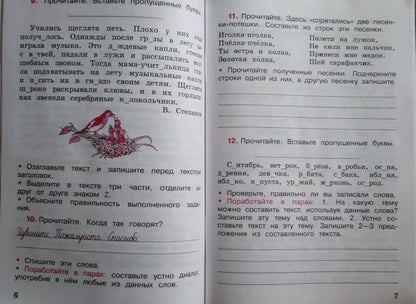 9. Прочитайте. Вставьте пропущенные буквы.
Учились щеглята петь. Плохо у них ещё
получ_лось. Однажды после гр_зы в лесу за-
играла музыка. Это д_ждевые капли, стекая
с в_твей, падали в лужи и рассыпались вол-
шебным звоном. Тогда мама-учит_льница ста-
ла подхватывать на лету музыкальные капли
и н_сить их в гн_здо своим детям. Щеглята
ш_роко раскрывали клювы, и в их горлыш-
ках звенели серебряные к_локольчики.
В. Степанов
• Озаглавьте текст и запишите перед текстом
заголовок.
• Выделите в тексте три части, отделите их
друг от друга знаком Z.
• Объясните правильность выполненного зада-
ния.
10. Прочитайте. Когда так говорят?
Извините. Пожалуйста. Спасибо.
• Спишите эти слова.
• Поработайте в парах: составьте устно диалог,
употребив в нём любые из данных слов.
6
11. Прочитайте. Здесь «спрятались» две песен-
ки-потешки. Составьте из строк эти песенки.
Иголка-иголка,
Пчёлка-пчёлка,
Ты остра и колка,
Золотая холка,
Полети на лужок,
Не коли мне пальчик,
Принеси мне медок.
Шей сарафанчик.
• Прочитайте полученные песенки. Подчеркните
строки одной из них, а другую песенку запишите.
12. Прочитайте. Вставьте пропущенные буквы.
С_нтябрь, вет_рок, б_рёза, в_робьи, ос_на,
д_ревня, дев_чка, р_бята, с_бака, ябл_ня,
ябл_ко, к_пуста, ур_жай, м_розы, ог_род.
• Проверьте, правильно ли вы записали слова.
• Поработайте в парах: 1. На какую тему
можно составить текст, используя данные слова?
Запишите эту тему над словами. 2. Устно со-
ставьте текст на эту тему. Запишите 2—3 пред-
ложения из составленного текста.
7